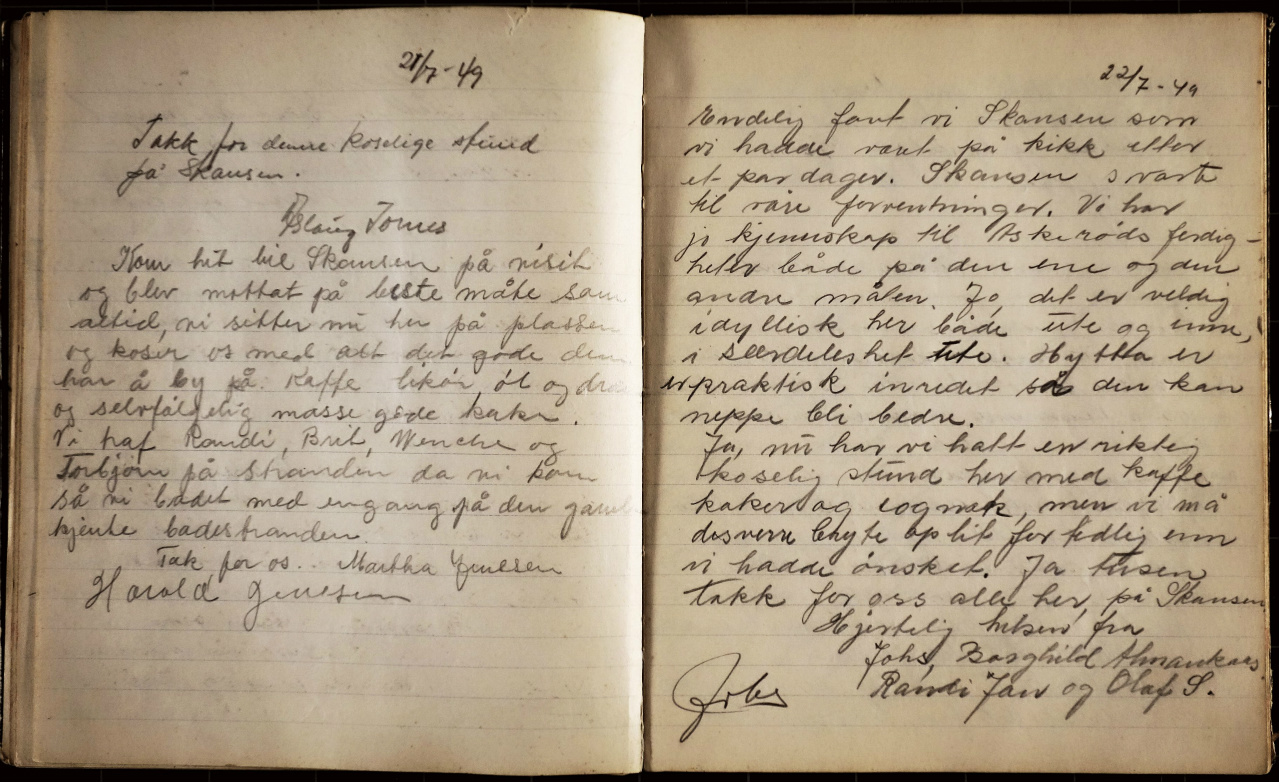 21/7-49
Takk for denne koselige stund
på Skansen.
Aslaug Tornes
Kom hit til Skansen på visit
og blev mottat på beste måte som
altid, vi sitter nu her på plassen
og koser os med alt det gode dem
har å by på. Kaffe likør, öl og
og selvfålgelig masse gode kaker.
Vi traf Randi, Brit, Wenche og
Torbjørn på stranden da vi kom
så vi badet med engang på den
kjente badestranden.
Tak for os.. Martha
Harald
22/7-49
Endelig fant vi Skansen som
vi hadde vært på kikk etter
et par dager. Skansen svarte
til våre forventninger. Vi har
jo kjennskap til Askerøds ferdig-
heter både på den ene og den
andre måten. Jo, det er veldig
idyllisk her både ute og inne,
i særdeleshet ute. Hytta er
er praktisk inredet så den kan
neppe bli bedre.
Ja, nu har vi hatt en riktig
koselig stund her med kaffe
kaker og cognak, men vi må
desverre bryte op litt for tidlig enn
vi hadde ønsket. Ja tusen
takk for oss alle her på Skansen
Hjertelig hilsen fra
Johs, Borghild
Randi Jan og Olaf S.